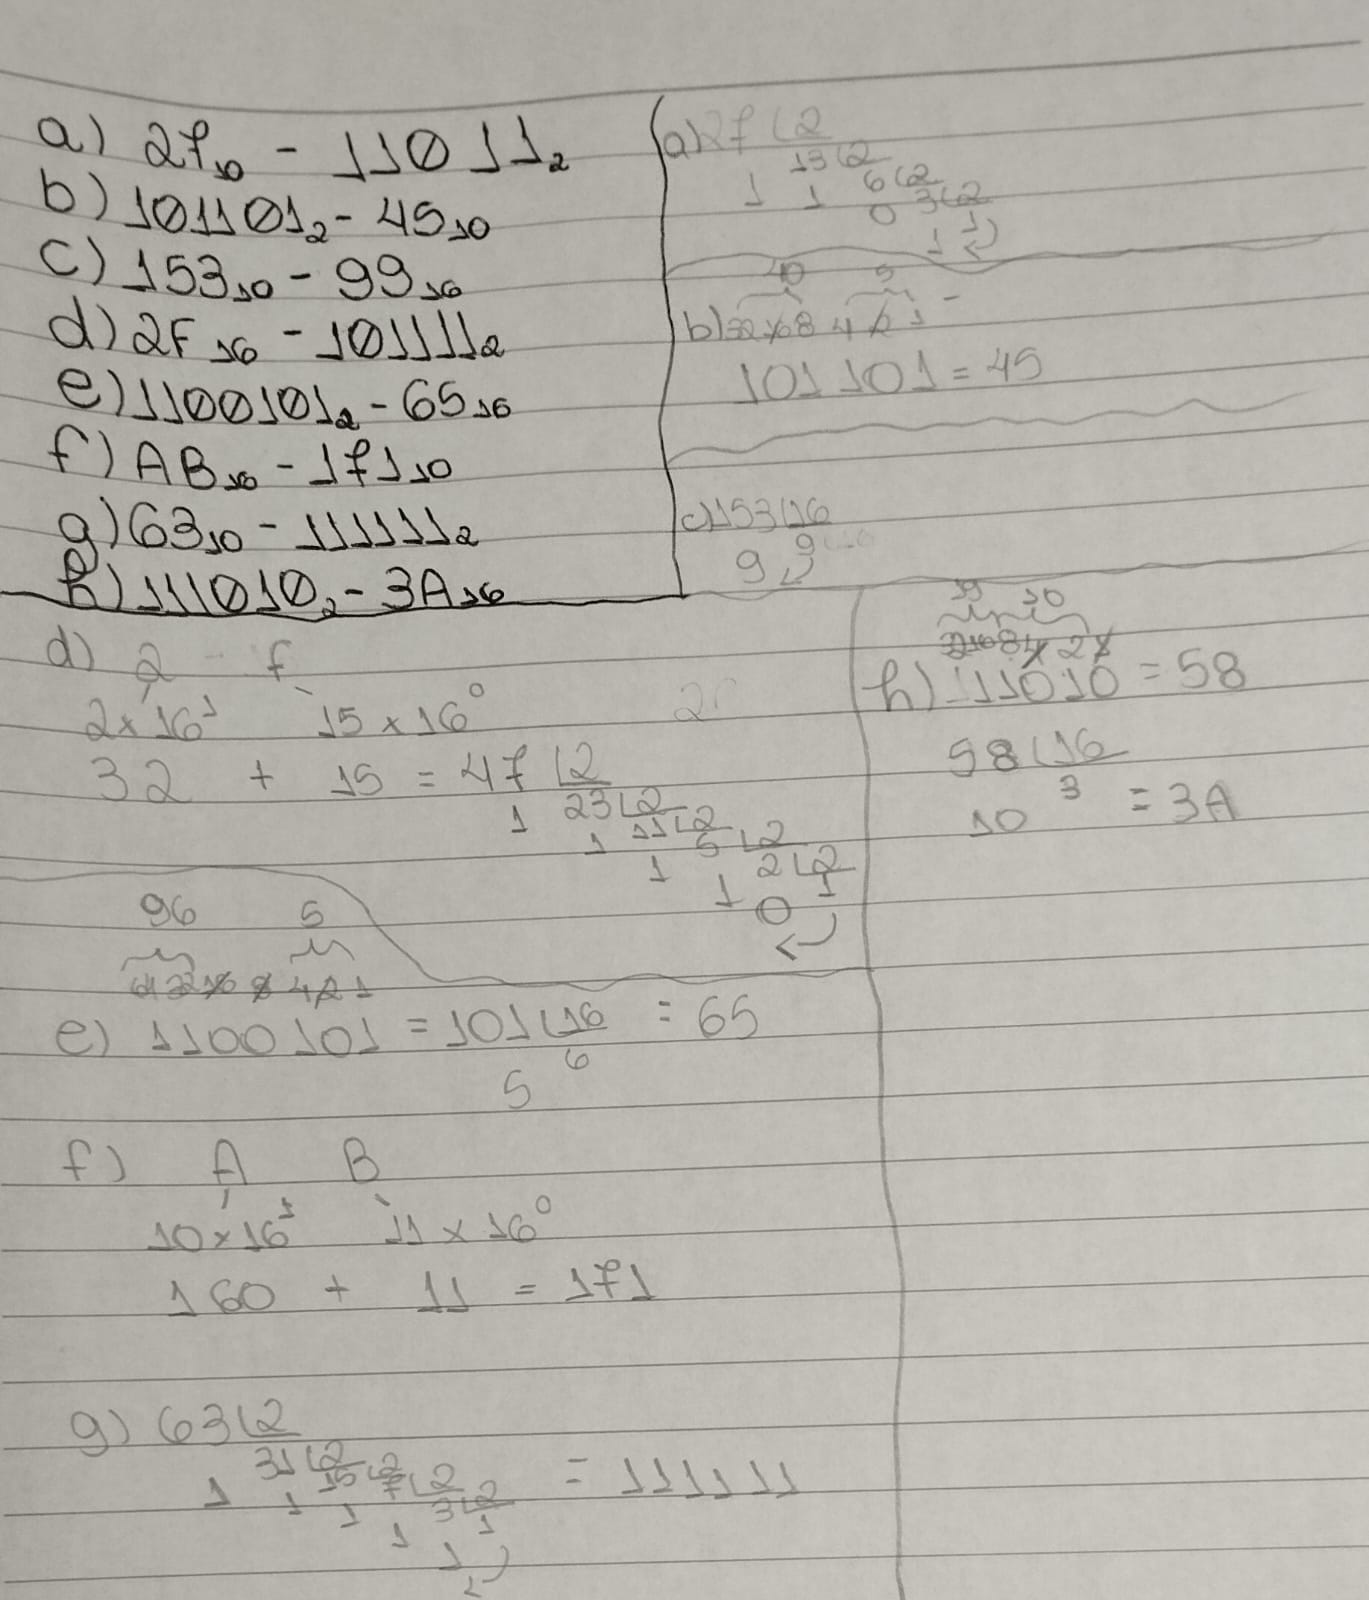 a) 27₁₀ - 11011₂
b) 101101₂ - 45₁₀
c) 153₁₀ - 99₁₆
d) 2F₁₆ - 101111₂
e) 1100101₂ - 65₁₆
f) AB₁₆ - 171₁₀
g) 63₁₀ - 111111₂
h) 111010₂ - 3A₁₆
a) 27 2
13 2
1 1 6 2
0 3 2
1 1
40 5
b) 32 16 8 4 2 1
101101 = 45
c) 153 16
9 9
d) 2 F
2 x 16¹ 15 x 16⁰
32 + 15 = 47 2
1 23 2
1 11 2
1 5 2
1 2 2
0 1
96 5
64 32 16 8 4 2 1
e) 1100101 = 101 16 = 65
5 6
f) A B
10 x 16¹ 11 x 16⁰
160 + 11 = 171
g) 63 2
31 2
1 15 2 = 111111
1 7 2
1 3 2
1 1
1
10
32 16 8 4 2 1
h) 111010 = 58
58 16
10 3 = 3A